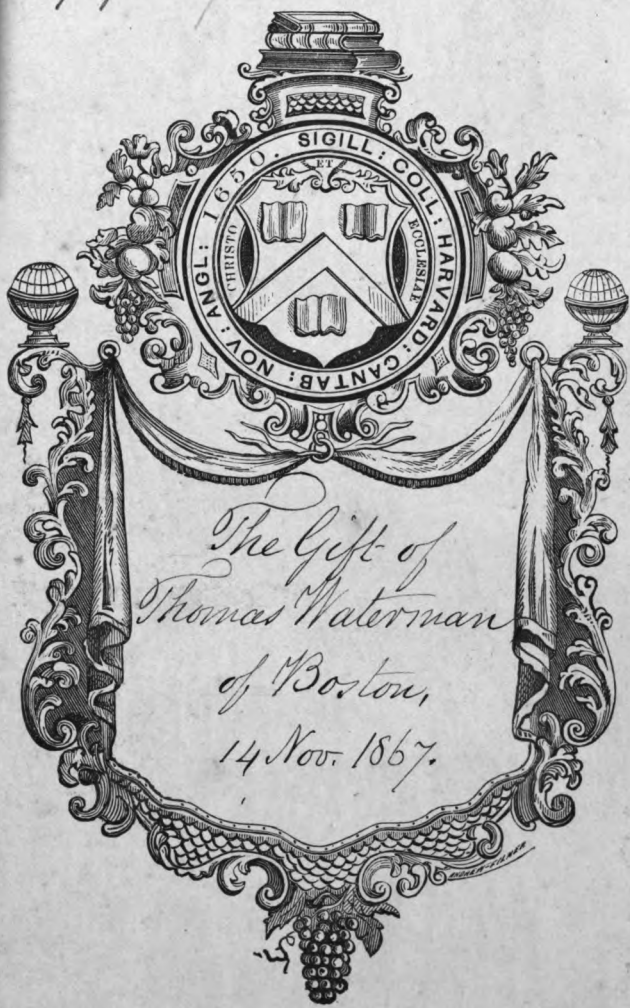 1650. SIGILL: COLL: HARVARD: CANTAB: NOV: ANGL:
CHRISTO
ET
ECCLESIAE
The Gift of
Thomas Waterman
of Boston,
14 Nov. 1867.